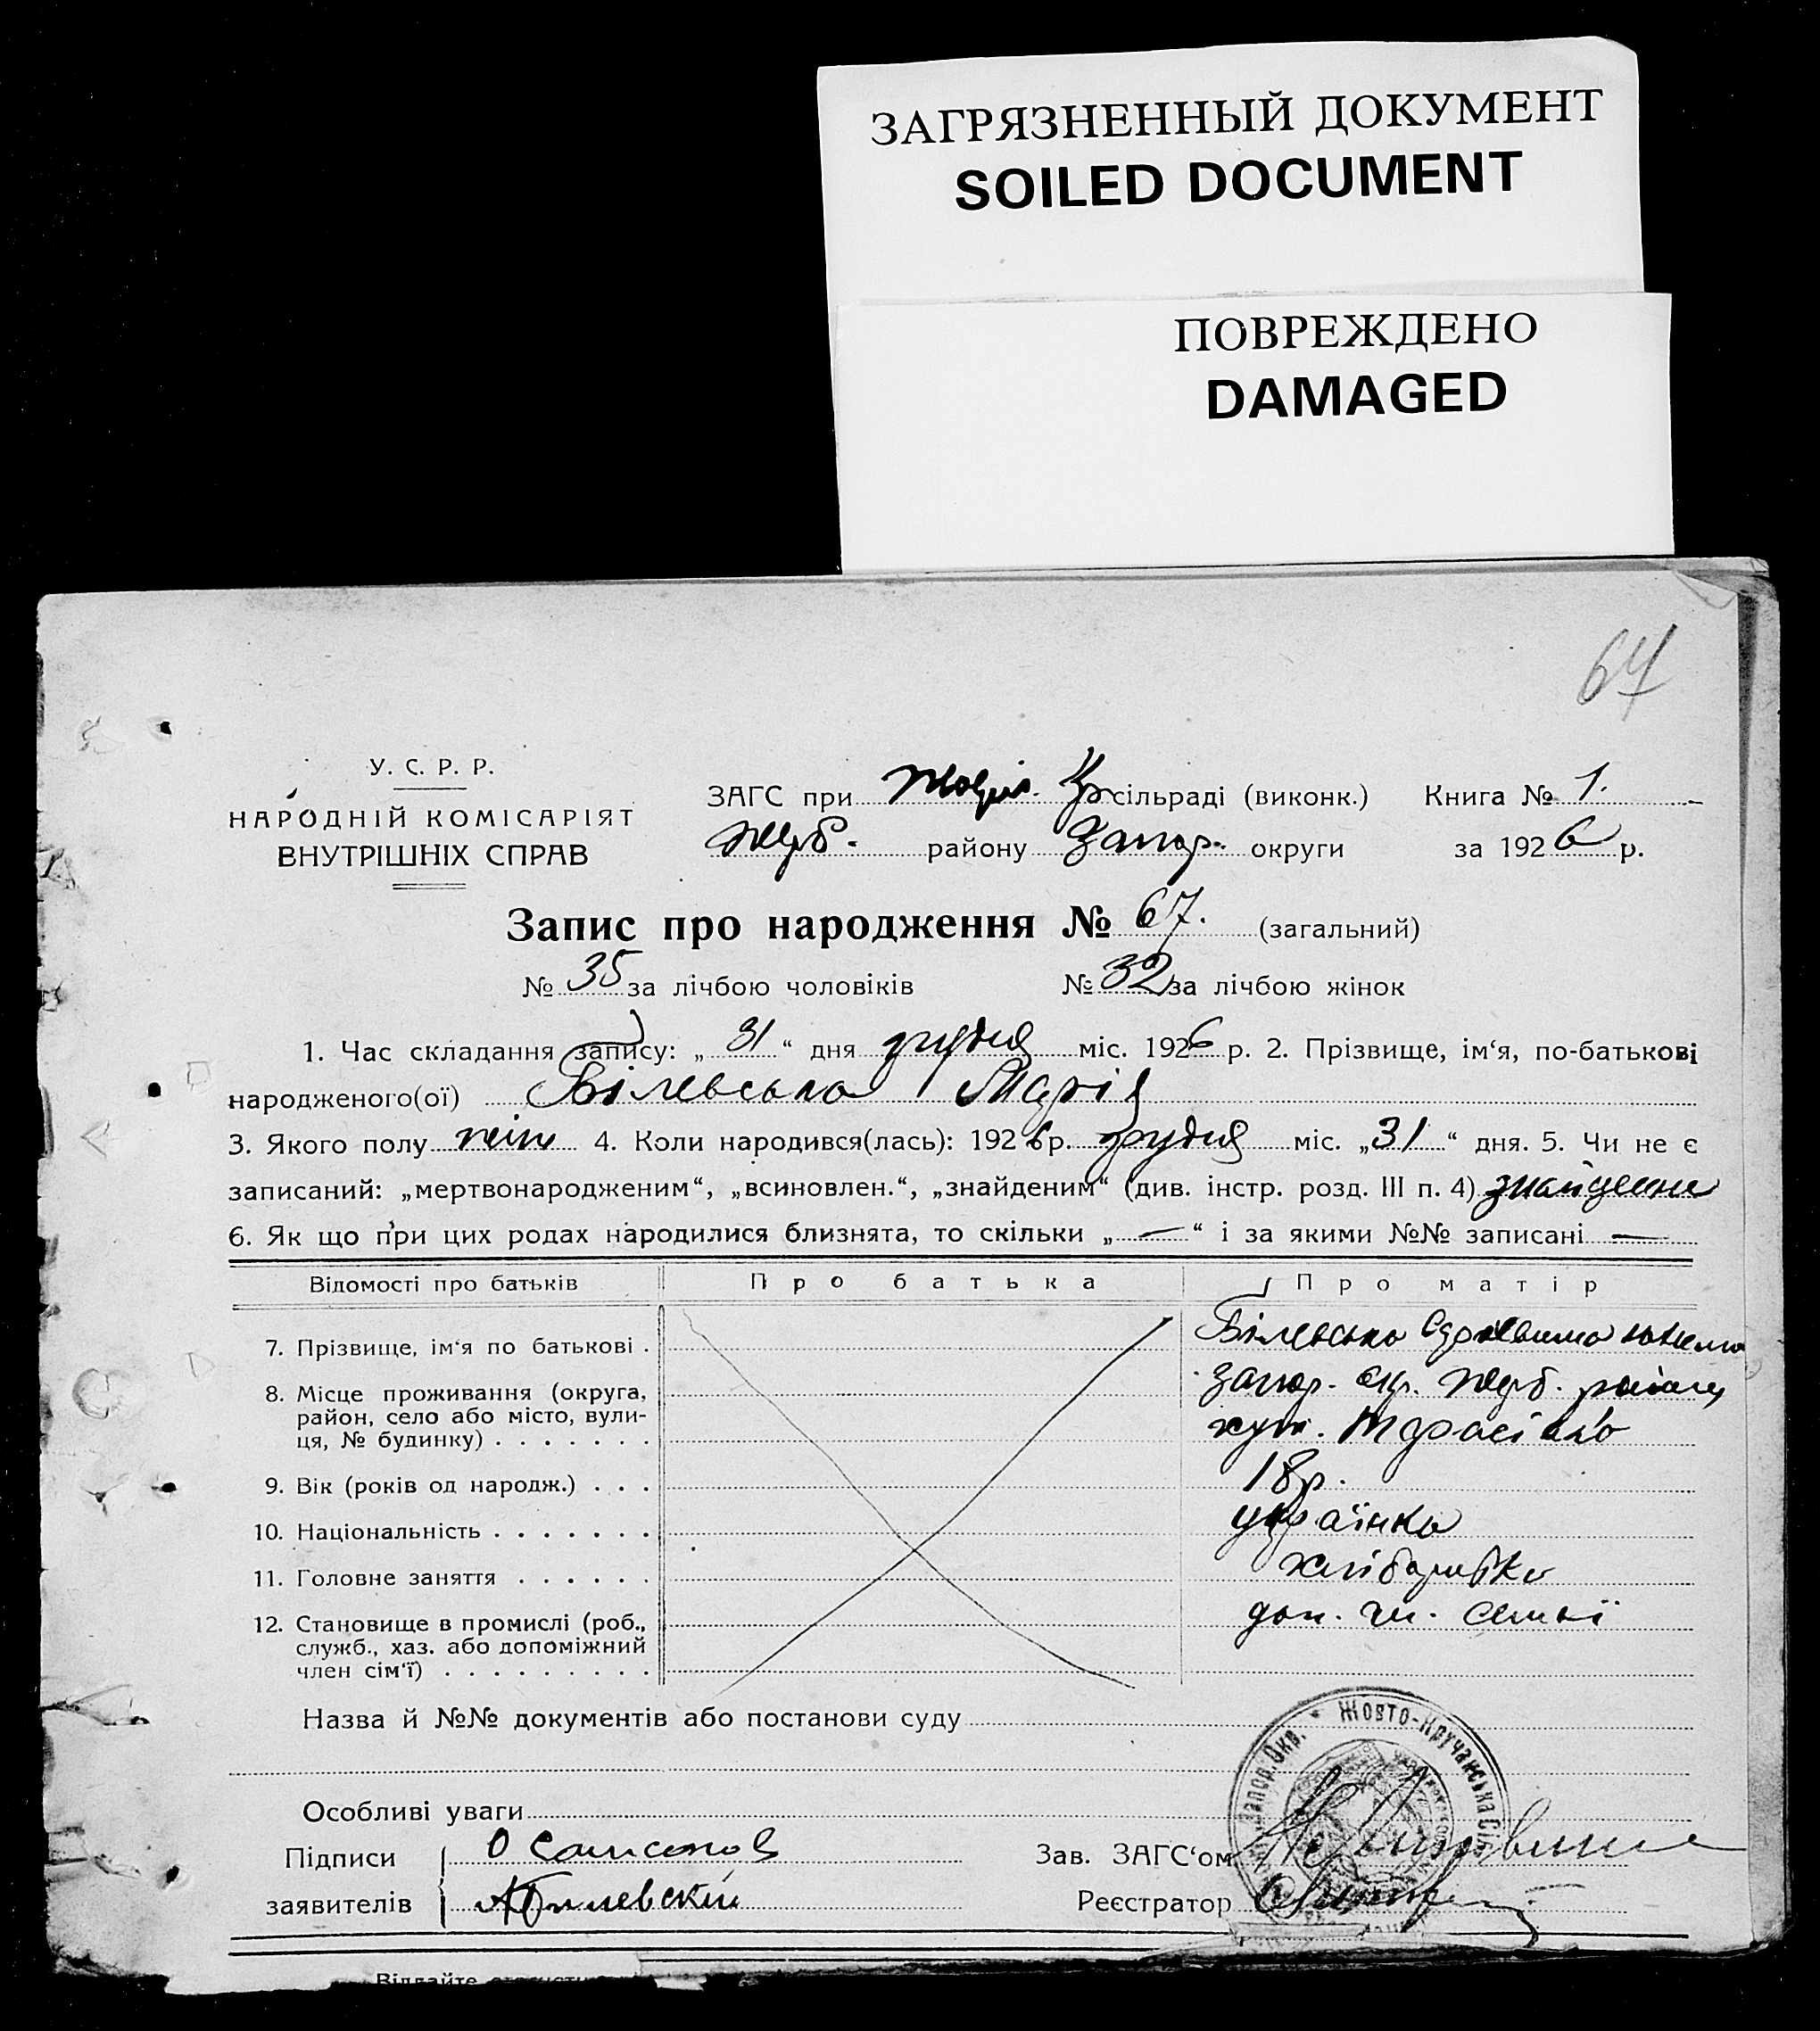 ЗАГРЯЗНЕННЫЙ ДОКУМЕНТ
SOILED DOCUMENT
ПОВРЕЖДЕНО
DAMAGED
64
У. С. Р. Р.
НАРОДНІЙ КОМІСАРІЯТ
ВНУТРІШНІХ СПРАВ
ЗАГС при сільраді (виконк.) Книга № 1.
Жереб. району Запор. округи за 1926 р.
Запис про народження № 67. (загальний)
№ 35 за лічбою чоловіків № 32 за лічбою жінок
1. Час складання запису: „ 31 “ дня грудня міс. 1926 р. 2. Прізвище, ім‘я, по-батькові
народженого(ої) Білевська Марія
3. Якого полу жін 4. Коли народився(лась): 1926 р. грудня міс. „ 31 “ дня. 5. Чи не є
записаний: „мертвонародженим“, „всиновлен.“, „знайденим“ (див. інстр. розд. III п. 4)
6. Як що при цих родах народилися близнята, то скільки „ — “ і за якими №№ записані —
Відомості про батьків Про батька Про матір
7. Прізвище, ім‘я по батькові . Білевська
8. Місце проживання (округа, Запор. окр. району
район, село або місто, вули-
ця, № будинку) . . . . . . . хут. Тарасівка
9. Вік (років од народж.) . . . 18 р.
10. Національність . . . . . . . українка
11. Головне заняття . . . . . . хліборобка
12. Становище в промислі (роб., доп. чл. семьї
служб., хаз. або допоміжний
член сім‘ї) . . . . . . . . .
Назва й №№ документів або постанови суду
Особливі уваги
Підписи О Самсонов Зав. ЗАГС‘ом
заявителів АБилевский Реєстратор
Жовто-Кручанська Сіл Запор. Окр.